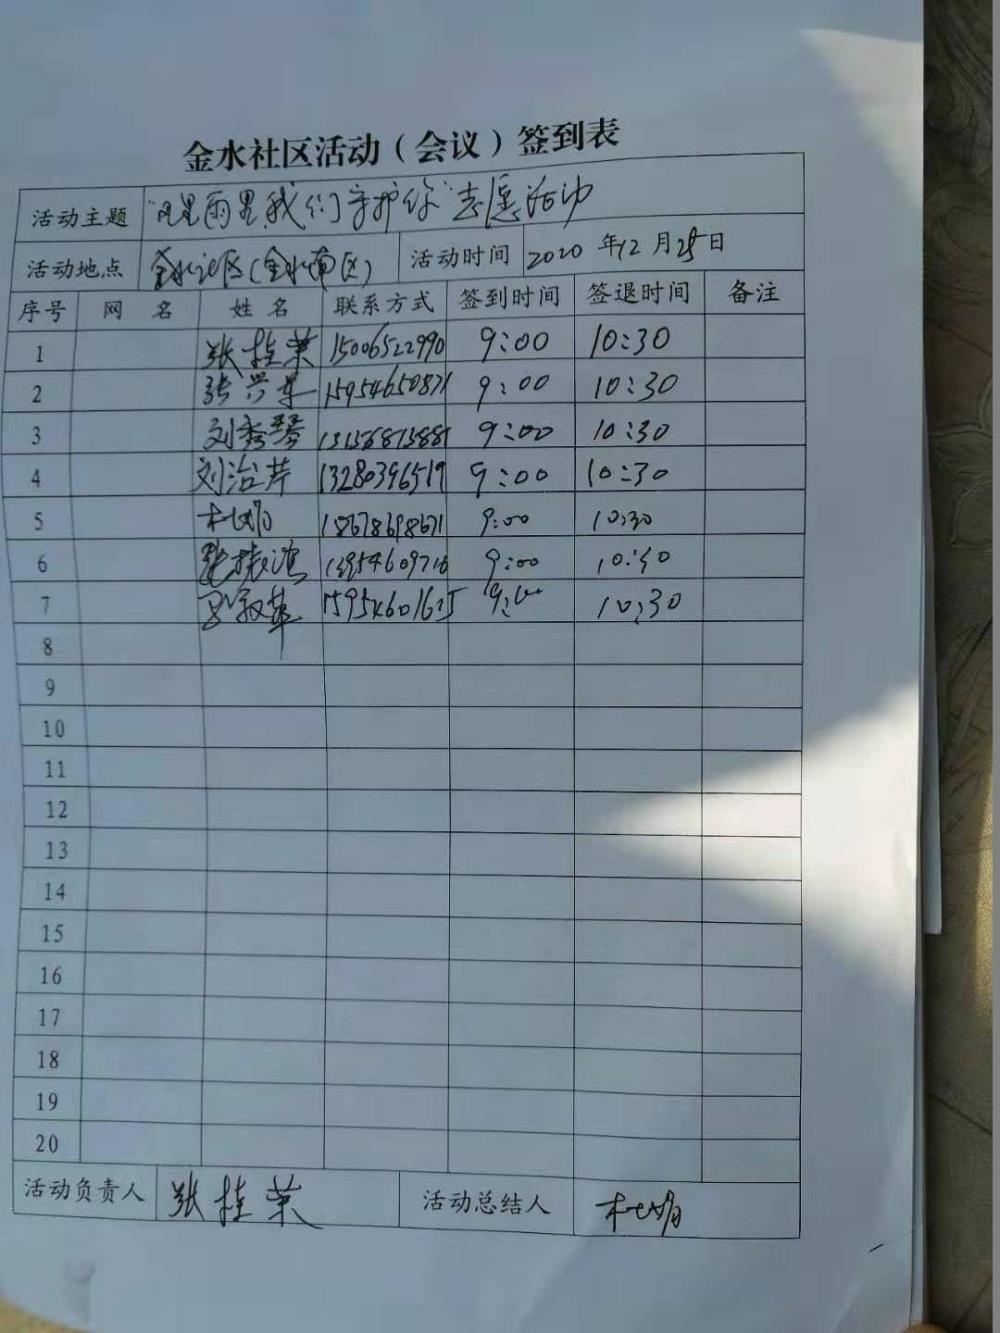 金水社区活动（会议）签到表
活动主题 “风里雨里,我们守护你”志愿活动
活动地点 金水社区(金水南区) 活动时间 2020 年12 月25日
序号 网 名 姓 名 联系方式 签到时间 签退时间 备注
1 张桂荣 15006522990 9:00 10:30
2 张兴军 15954650871 9:00 10:30
3 刘秀琴 9:00 10:30
4 刘治芹 13280396519 9:00 10:30
5 杜娟 15678698671 9:00 10:30
6 9:00 10:30
7 9:00 10:30
8
9
10
11
12
13
14
15
16
17
18
19
20
活动负责人 张桂荣 活动总结人 杜娟